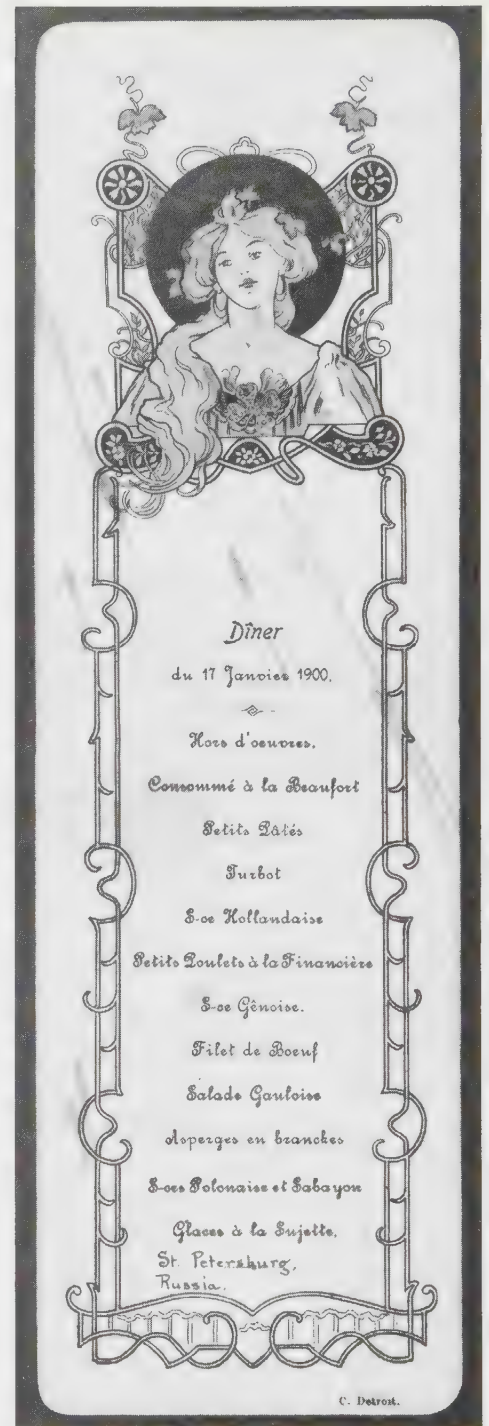 Dîner
du 17 Janvier 1900.
Hors d'oeuvres.
Consommé à la Beaufort
Petits Pâtés
Turbot
S-ce Hollandaise
Petits Poulets à la Financière
S-ce Gênoise.
Filet de Boeuf
Salade Gauloise
Asperges en branches
S-ces Polonaise et Sabayon
Glaces à la Sujette.
St. Petersburg,
Russia.
C. Detroit.